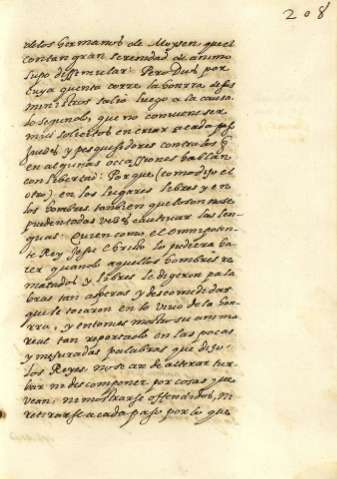 208
de los hermanos de Moysen, que el
con tan gran serenidad de animo
supo dissimular: Pero Dios por
cuya quenta corre la honrra de sus
ministros salió luego a la causa.
lo segundo, que no conviene ser
muy solicitos en criar a cada paso
Jueces, y pesquisidores contra los q
en algunas occassiones hablan
con libertad: Porque (como dijo el
otro) en los lugares libres y en
los hombres tambien que lo son no es
prudente todas veces cautivar las len
guas. Quien como el omnipoten
te Rey Jesu Christo lo pudiera ha
cer quando aquellos hombres re
matados y libres le digeron pala
bras tan asperas y descomedidas
que le tocaron en lo vivo de la hon
rra, y entonces mostro su animo
real tan reportado en las pocas
y mesuradas palabras que dijo.
los Reyes no se an de alterar tur
bar ni descomponer por cosas que
vean: ni mostrarse offendidos, ni
retirarse a cada paso por lo que